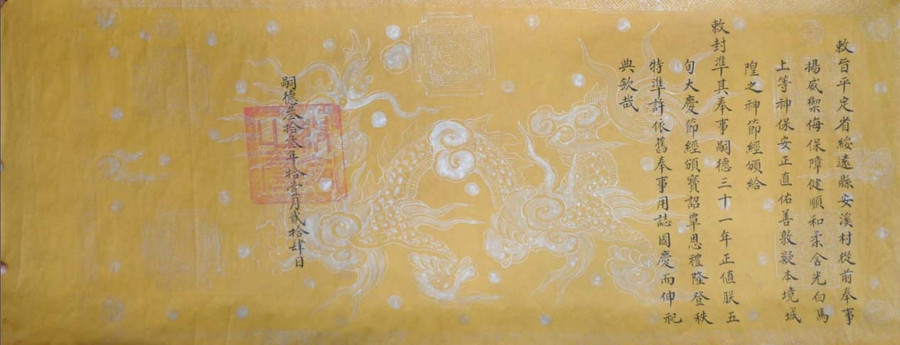 敕旨平定省綏遠縣安溪村從前奉事
揚威禦侮保障健順和柔含光白馬
上等神保安正直佑善敦凝本境城
隍之神節經頒給
敕封準其奉事嗣德三十一年正值朕五
旬大慶節經頒寶詔覃恩禮隆登秩
特準許依舊奉事用誌國慶而伸祀
典欽哉
嗣德叁拾叁年拾壹月貳拾肆日